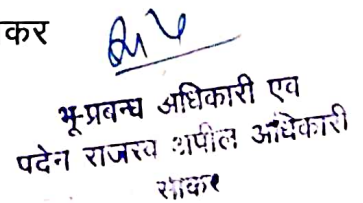 कर
भू-प्रबन्ध अधिकारी एवं
पदेन राजस्व अपील अधिकारी
सीकर